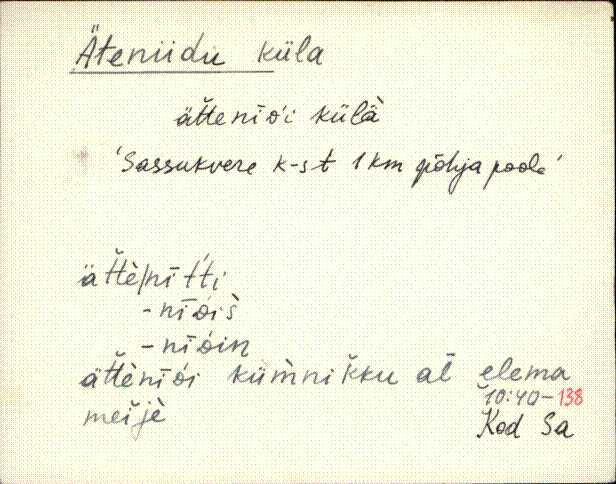 Äteniidu küla
ät̆teni̮ó́i külä̀
'Sassukvere k-st 1 km põhja poole'
ät̆tè/nīt́ti
-nīóis̀
-nīóin
ät̆tènīói küm̀nik̆ku al̄ elema
10:40-138
meijè
Kod Sa